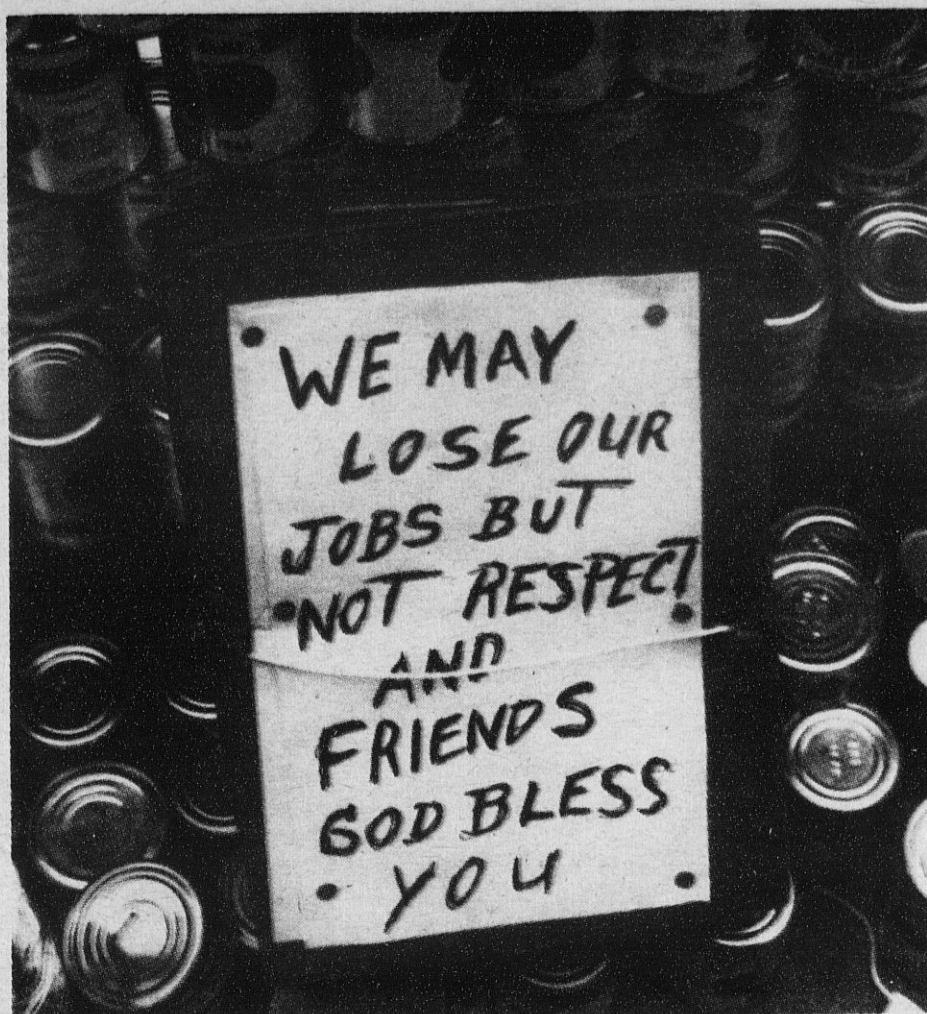 WE MAY
LOSE OUR
JOBS BUT
NOT RESPECT
AND
FRIENDS
GOD BLESS
YOU